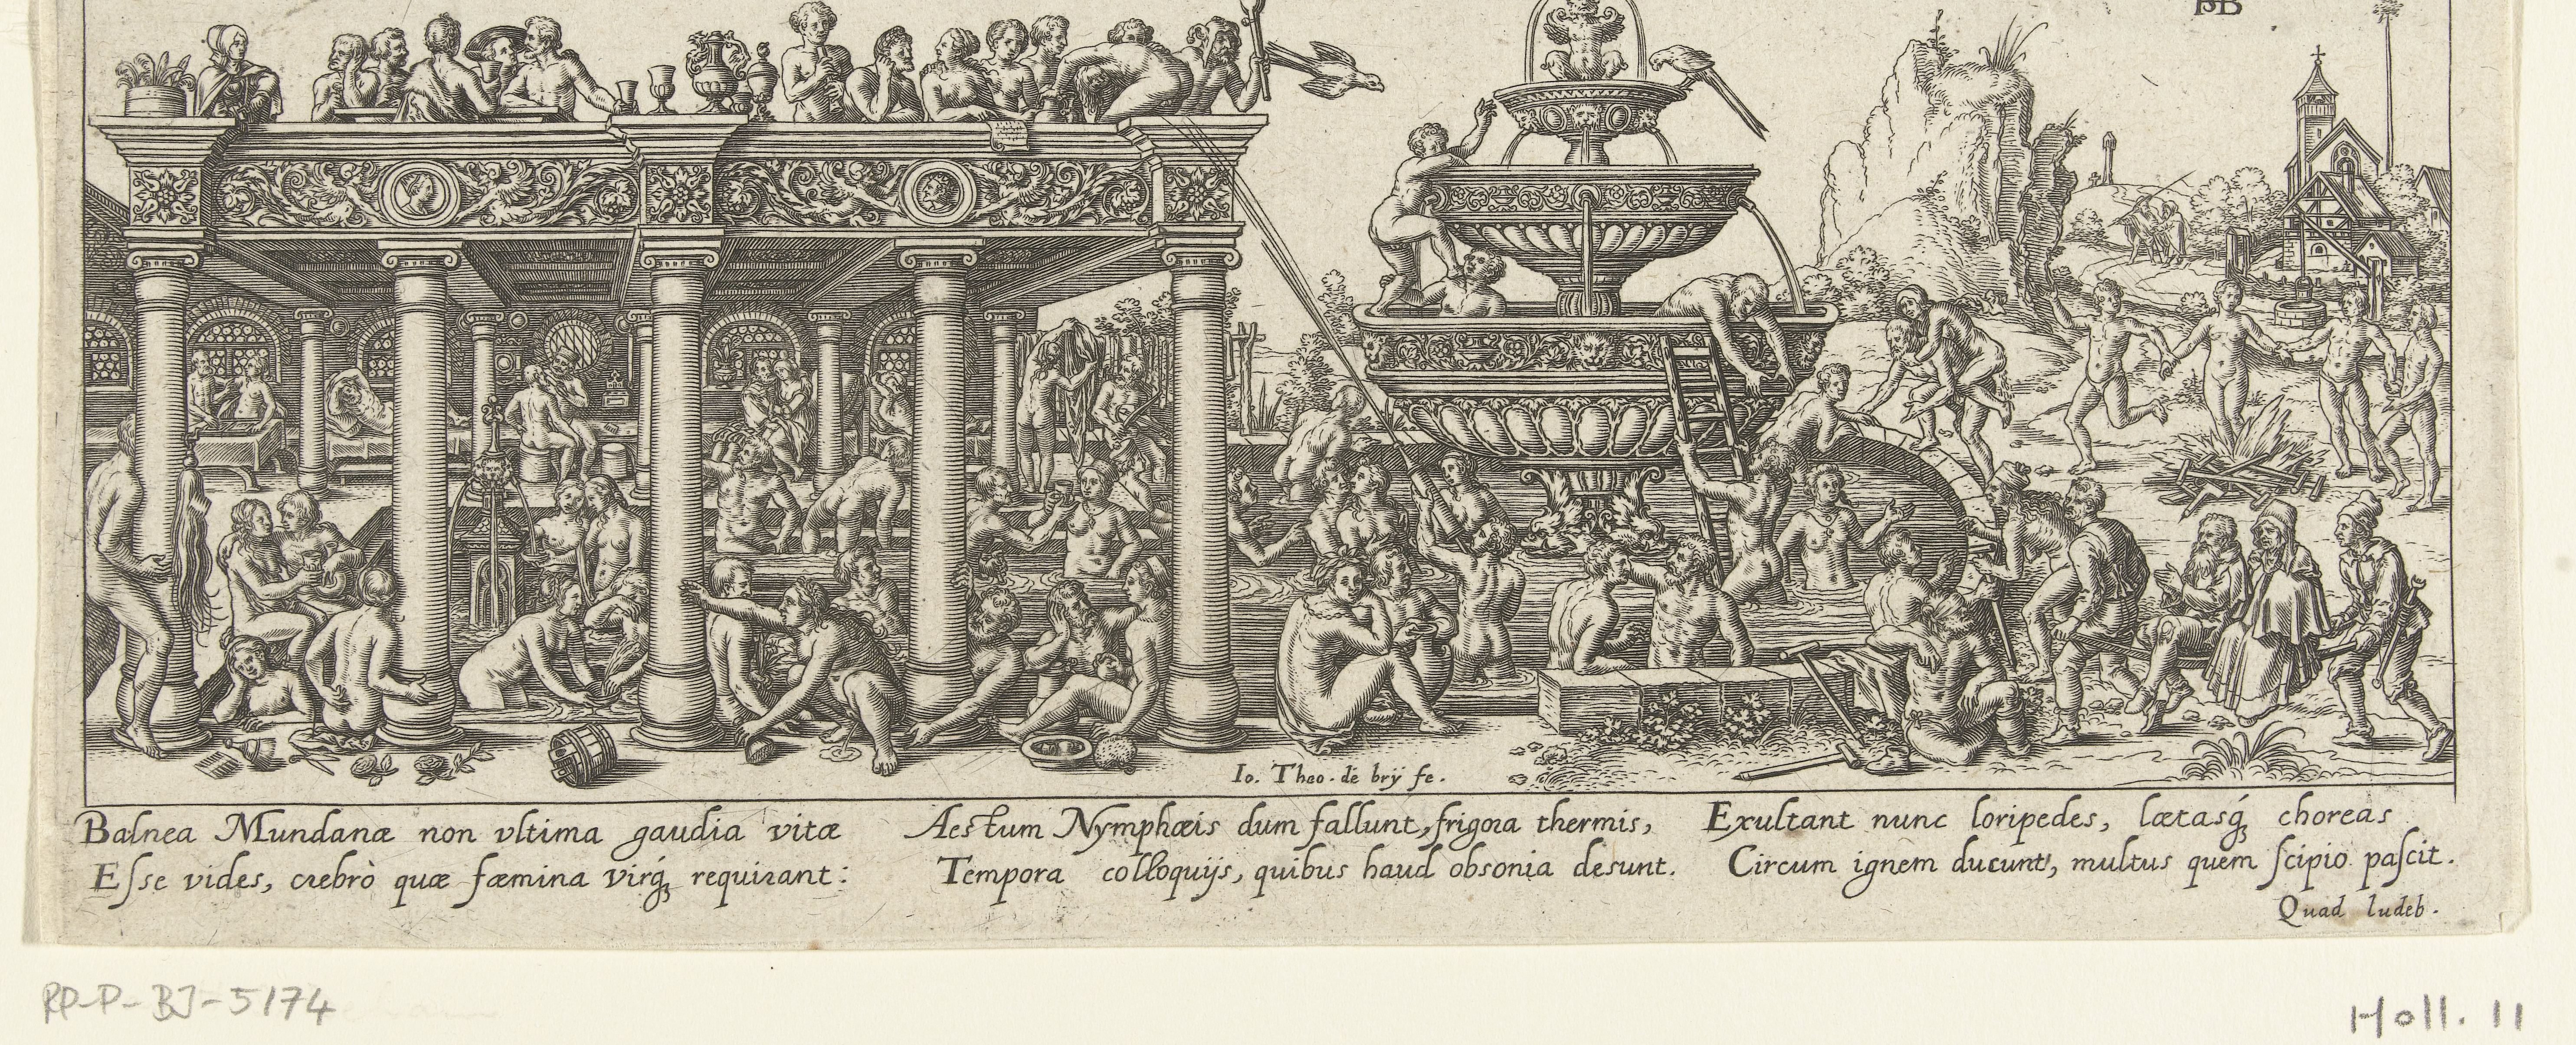 BB
Io. Theo. de brÿ fe.
Balnea Mundanæ non vltima gaudia vitæ
Esse vides, crebrò quæ fæmina virq́ꝫ requirant:
Aestum Nymphæis dum fallunt, frigora thermis,
Tempora colloquijs, quibus haud obsonia desunt.
Exultant nunc loripedes, lætasq́ꝫ choreas
Circum ignem ducunt, multus quem scipio pascit.
Quad ludeb.
RP-P-BI-5174
Holl. 11